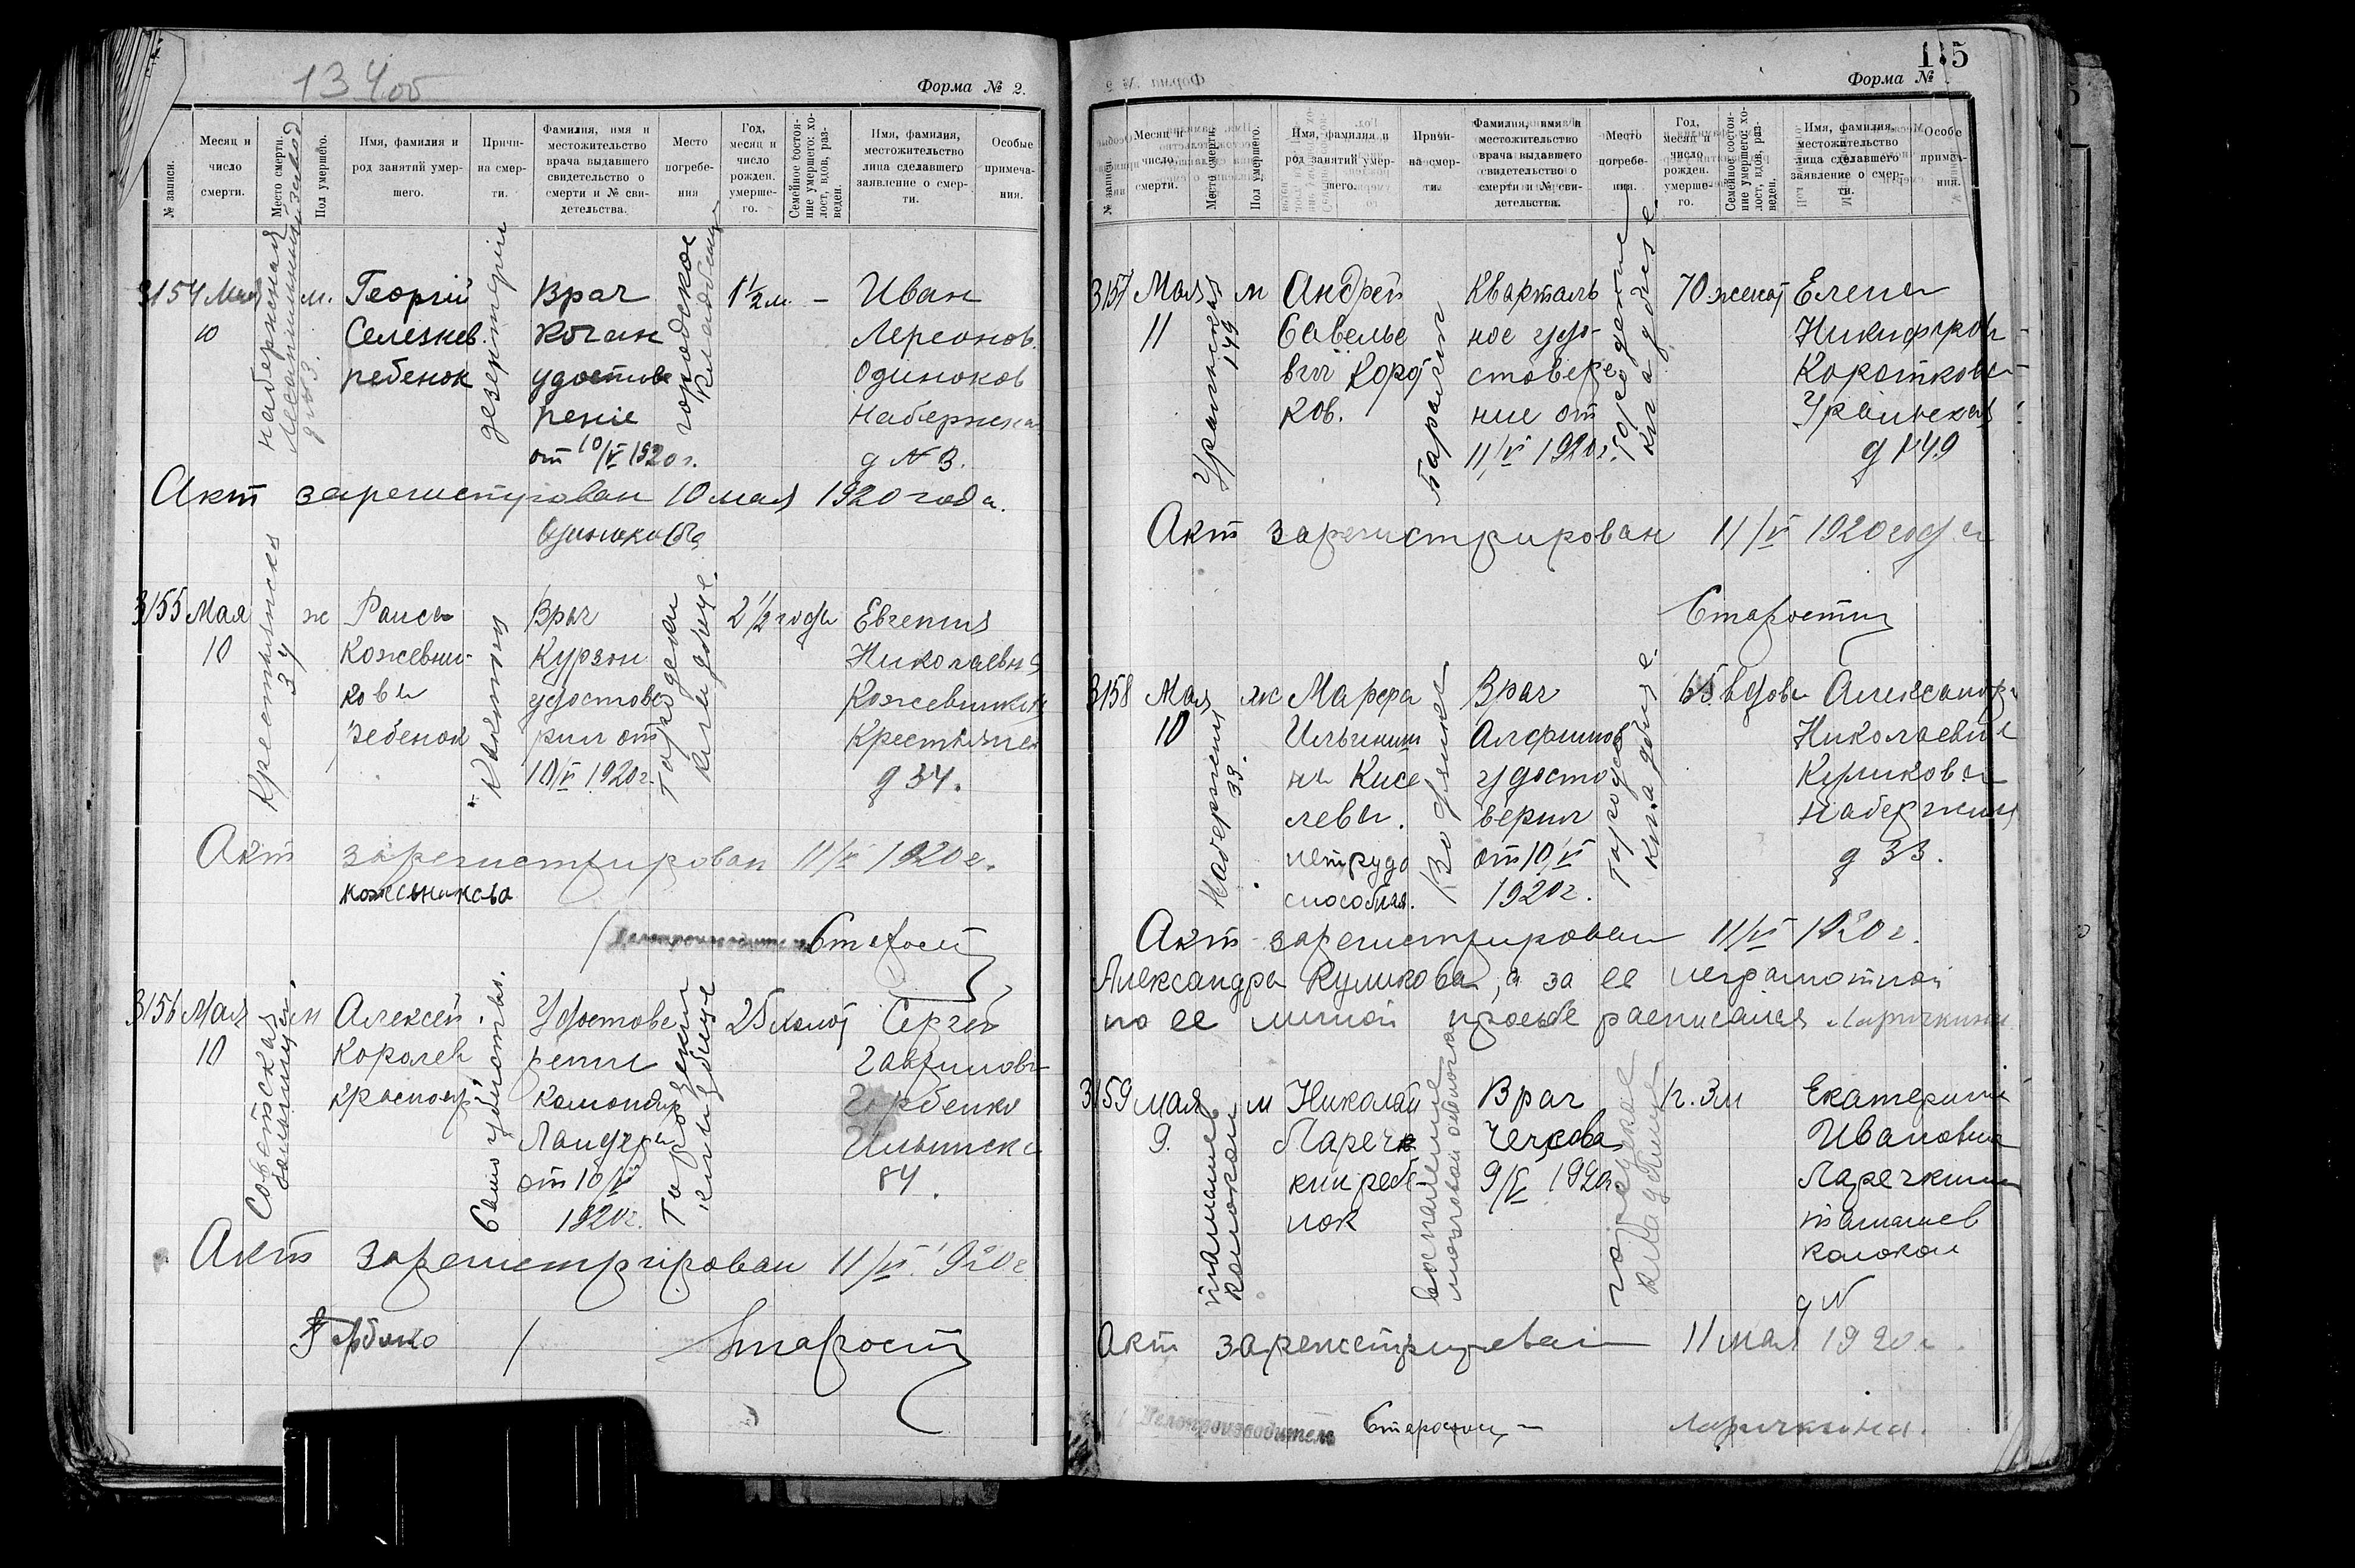 134об
Форма № 2.
№ записи.
Месяц и число смерти.
Место смерти.
Пол умершего.
Имя, фамилия и род занятий умершего.
Причина смерти.
Фамилия, имя и местожительство врача выдавшего свидетельство о смерти и № свидетельства.
Место погребения
Год, месяц и число рожден. умершего.
Семейное состояние умершего: холост, вдов, разведен.
Имя, фамилия, местожительство лица сделавшего заявление о смерти.
Особые примечания.
3154 Мая м. Георгий Врач 1½ м. — Иван
10 Селезнев. Коган
ребенок удостове Одиноков
рение Набережная
от 10/V 1920 г. д № 3.
Набережная
д № 3.
дезентерии
городское
кладбище
Акт зарегистрован 10 мая 1920 года.
3155 Мая ж Раиса Врач 2½ года Евгения
10 Кожевни- Курзон Николаевна
кова удостове Кожевникова
ребенок рил от Крестьянск
10/V 1920 г. д 34.
Крестьянская
34
Городское
кладбище.
Акт зарегистрирован 11/V 1920 г.
кожевникова
Делопроизводитель Старостин
3156 Мая м Алексей Удостове 25 холост Сергей
10 Королев рение Гаврилович
красноар. Командира Горбенко
Ландера Ильинска
от 10/V 84.
1920 г.
Советская
больница
Само убийство.
Городское
кладбище
Акт зарегистрирован 11/V 1920 г
Старостин
135
Форма №
№ записи
Месяц и число смерти.
Место смерти.
Пол умершего.
Имя, фамилия и род занятий умершего.
Причина смерти.
Фамилия, имя и местожительство врача выдавшего свидетельство о смерти и № свидетельства.
Место погребения.
Год, месяц и число рожден. умершего.
Семейное состояние умершего: холост, вдов, разведен.
Имя, фамилия, местожительство лица сделавшего заявление о смерти.
Особе примечания.
3157 Мая м Андрей Кварталь 70 женат Елена
11 Савелье ное удо- Никифоров
вич Корот стовере Короткова
ков. ние от Уральская
11/V 1920 г. д 149
Уральская
149
Паралич
Городское
кладбище.
Акт зарегистрирован 11/V 1920 года
Старостин
3158 Мая ж Марфа Врач 65 вдова Александра
10 Ильинич Алфимов Николаевна
на Кисе удосто Куликова
лева. верил Набережная
нетрудо от 10/V д 33.
способная. 1920 г.
Набережная
33.
Водянка
Городское
кладбище.
Акт зарегистрирован 11/V 1920 г.
Александра Куликова, а за ее неграмотной
по ее личной просьбе расписался
3159 мая м Николай Врач 1 г. 3 м Екатерина
9. Лареч Чехова Ивановна
кин ребе- 9/V 1920 Ларечкина
нок
д №
воспаление
городское
кладбище
Акт зарегистрирован 11 мая 1920 г.
Делопроизводитель Старостин — Ларичкина.